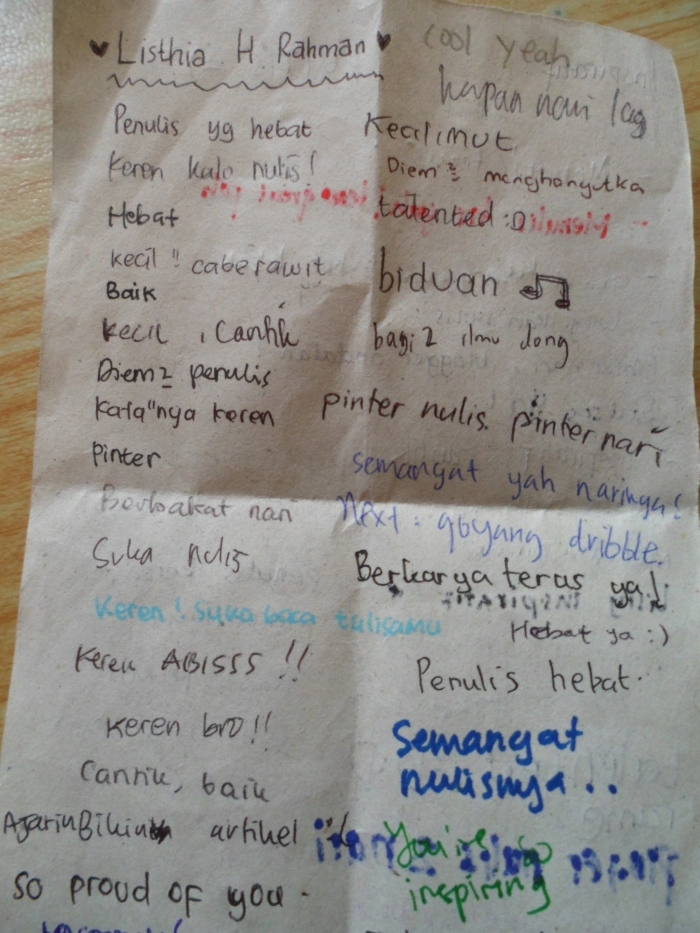 ♥ Listhia H. Rahman ♥
Penulis yg hebat
Keren kalo nulis!
Hebat
kecil" caberawit
Baik
Kecil, Cantik
Diem2 penulis
Kata"nya keren
Pinter
Berbakat nari
Suka nulis
Keren! Suka baca tulisanmu
Keren ABISSS !!
Keren bro!!
Cantik, baik
Ajarin Bikin artikel
so proud of you.
cool yeah
kapan nari lag
Kecil imut
Diem2 menghanyutka
talented :D
biduan ♫
bagi2 ilmu dong
pinter nulis. pinter nari
semangat yah narinya!
Next : goyang dribble.
Berkarya terus ya!
Hebat ya :)
Penulis hebat.
Semangat
nulisnya..
You're so
inspiring